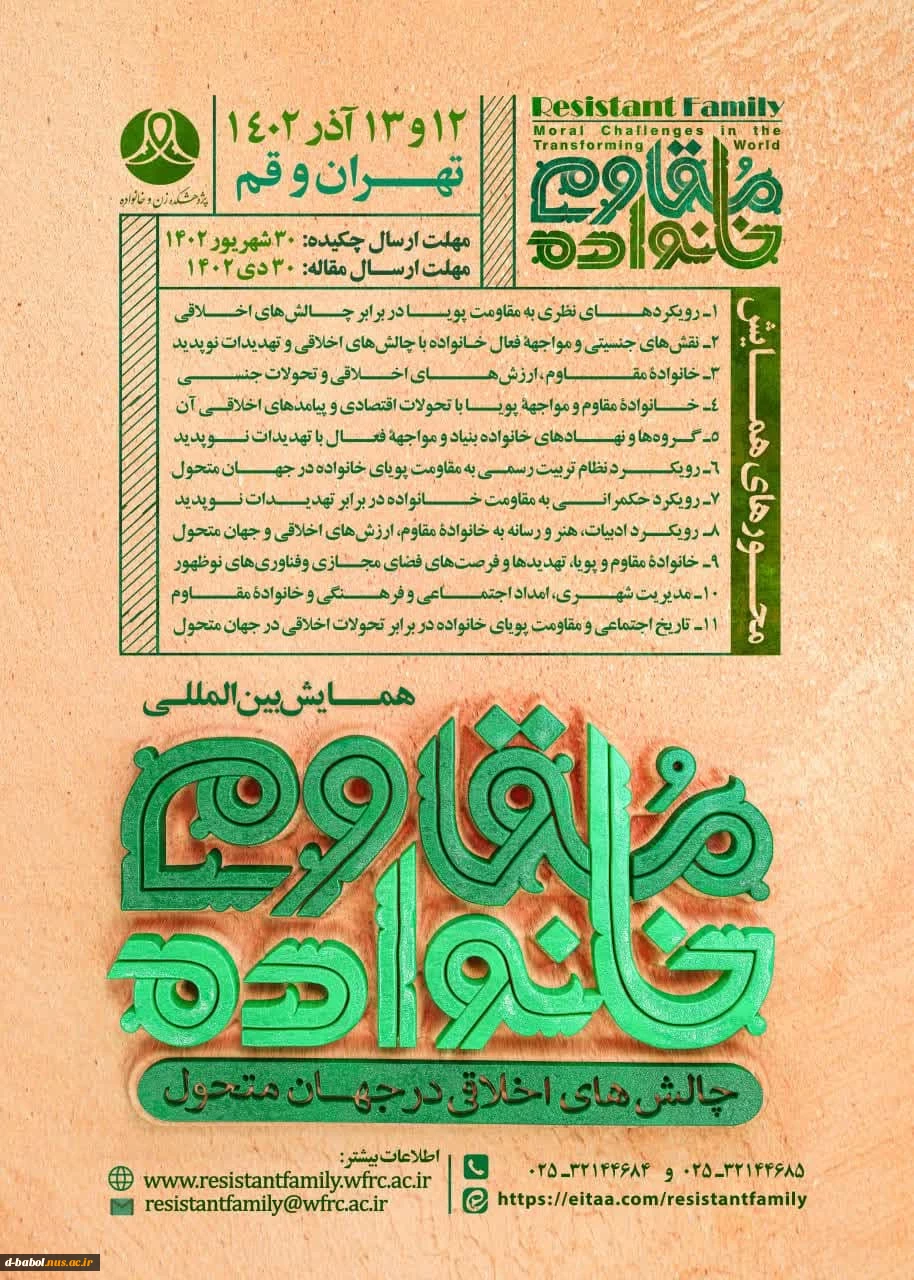 Resistant Family
Moral Challenges in the
Transforming World
مُقاوم
خانواده
۱۲ و ۱۳ آذر ۱۴۰۲
تهـران و قم
پژوهشکده زن و خانواده
مهلت ارسال چکیده: ۳۰ شهریور ۱۴۰۲
مهلت ارسال مقاله: ۳۰ دی ۱۴۰۲
محورهای همایش
۱ـ رویکردهای نظری به مقاومت پویا در برابر چالش‌های اخلاقی
۲ـ نقش‌های جنسیتی و مواجههٔ فعال خانواده با چالش‌های اخلاقی و تهدیدات نوپدید
۳ـ خانوادهٔ مقاوم، ارزش‌های اخلاقی و تحولات جنسی
۴ـ خانوادهٔ مقاوم و مواجههٔ پویا با تحولات اقتصادی و پیامدهای اخلاقی آن
۵ـ گروه‌ها و نهادهای خانواده بنیاد و مواجههٔ فعال با تهدیدات نوپدید
۶ـ رویکرد نظام تربیت رسمی به مقاومت پویای خانواده در جهان متحول
۷ـ رویکرد حکمرانی به مقاومت خانواده در برابر تهدیدات نوپدید
۸ـ رویکرد ادبیات، هنر و رسانه به خانوادهٔ مقاوم، ارزش‌های اخلاقی و جهان متحول
۹ـ خانوادهٔ مقاوم و پویا، تهدیدها و فرصت‌های فضای مجازی وفناوری‌های نوظهور
۱۰ـ مدیریت شهری، امداد اجتماعی و فرهنگی و خانوادهٔ مقاوم
۱۱ـ تاریخ اجتماعی و مقاومت پویای خانواده در برابر تحولات اخلاقی در جهان متحول
همایش بین‌المللی
مُقاوم
خانواده
چالش های اخلاقی در جهان متحول
۰۲۵ـ۳۲۱۴۴۶۸۵ و ۰۲۵ـ۳۲۱۴۴۶۸۴
https://eitaa.com/resistantfamily
اطلاعات بیشتر:
www.resistantfamily.wfrc.ac.ir
resistantfamily@wfrc.ac.ir
d-babol.nus.ac.ir